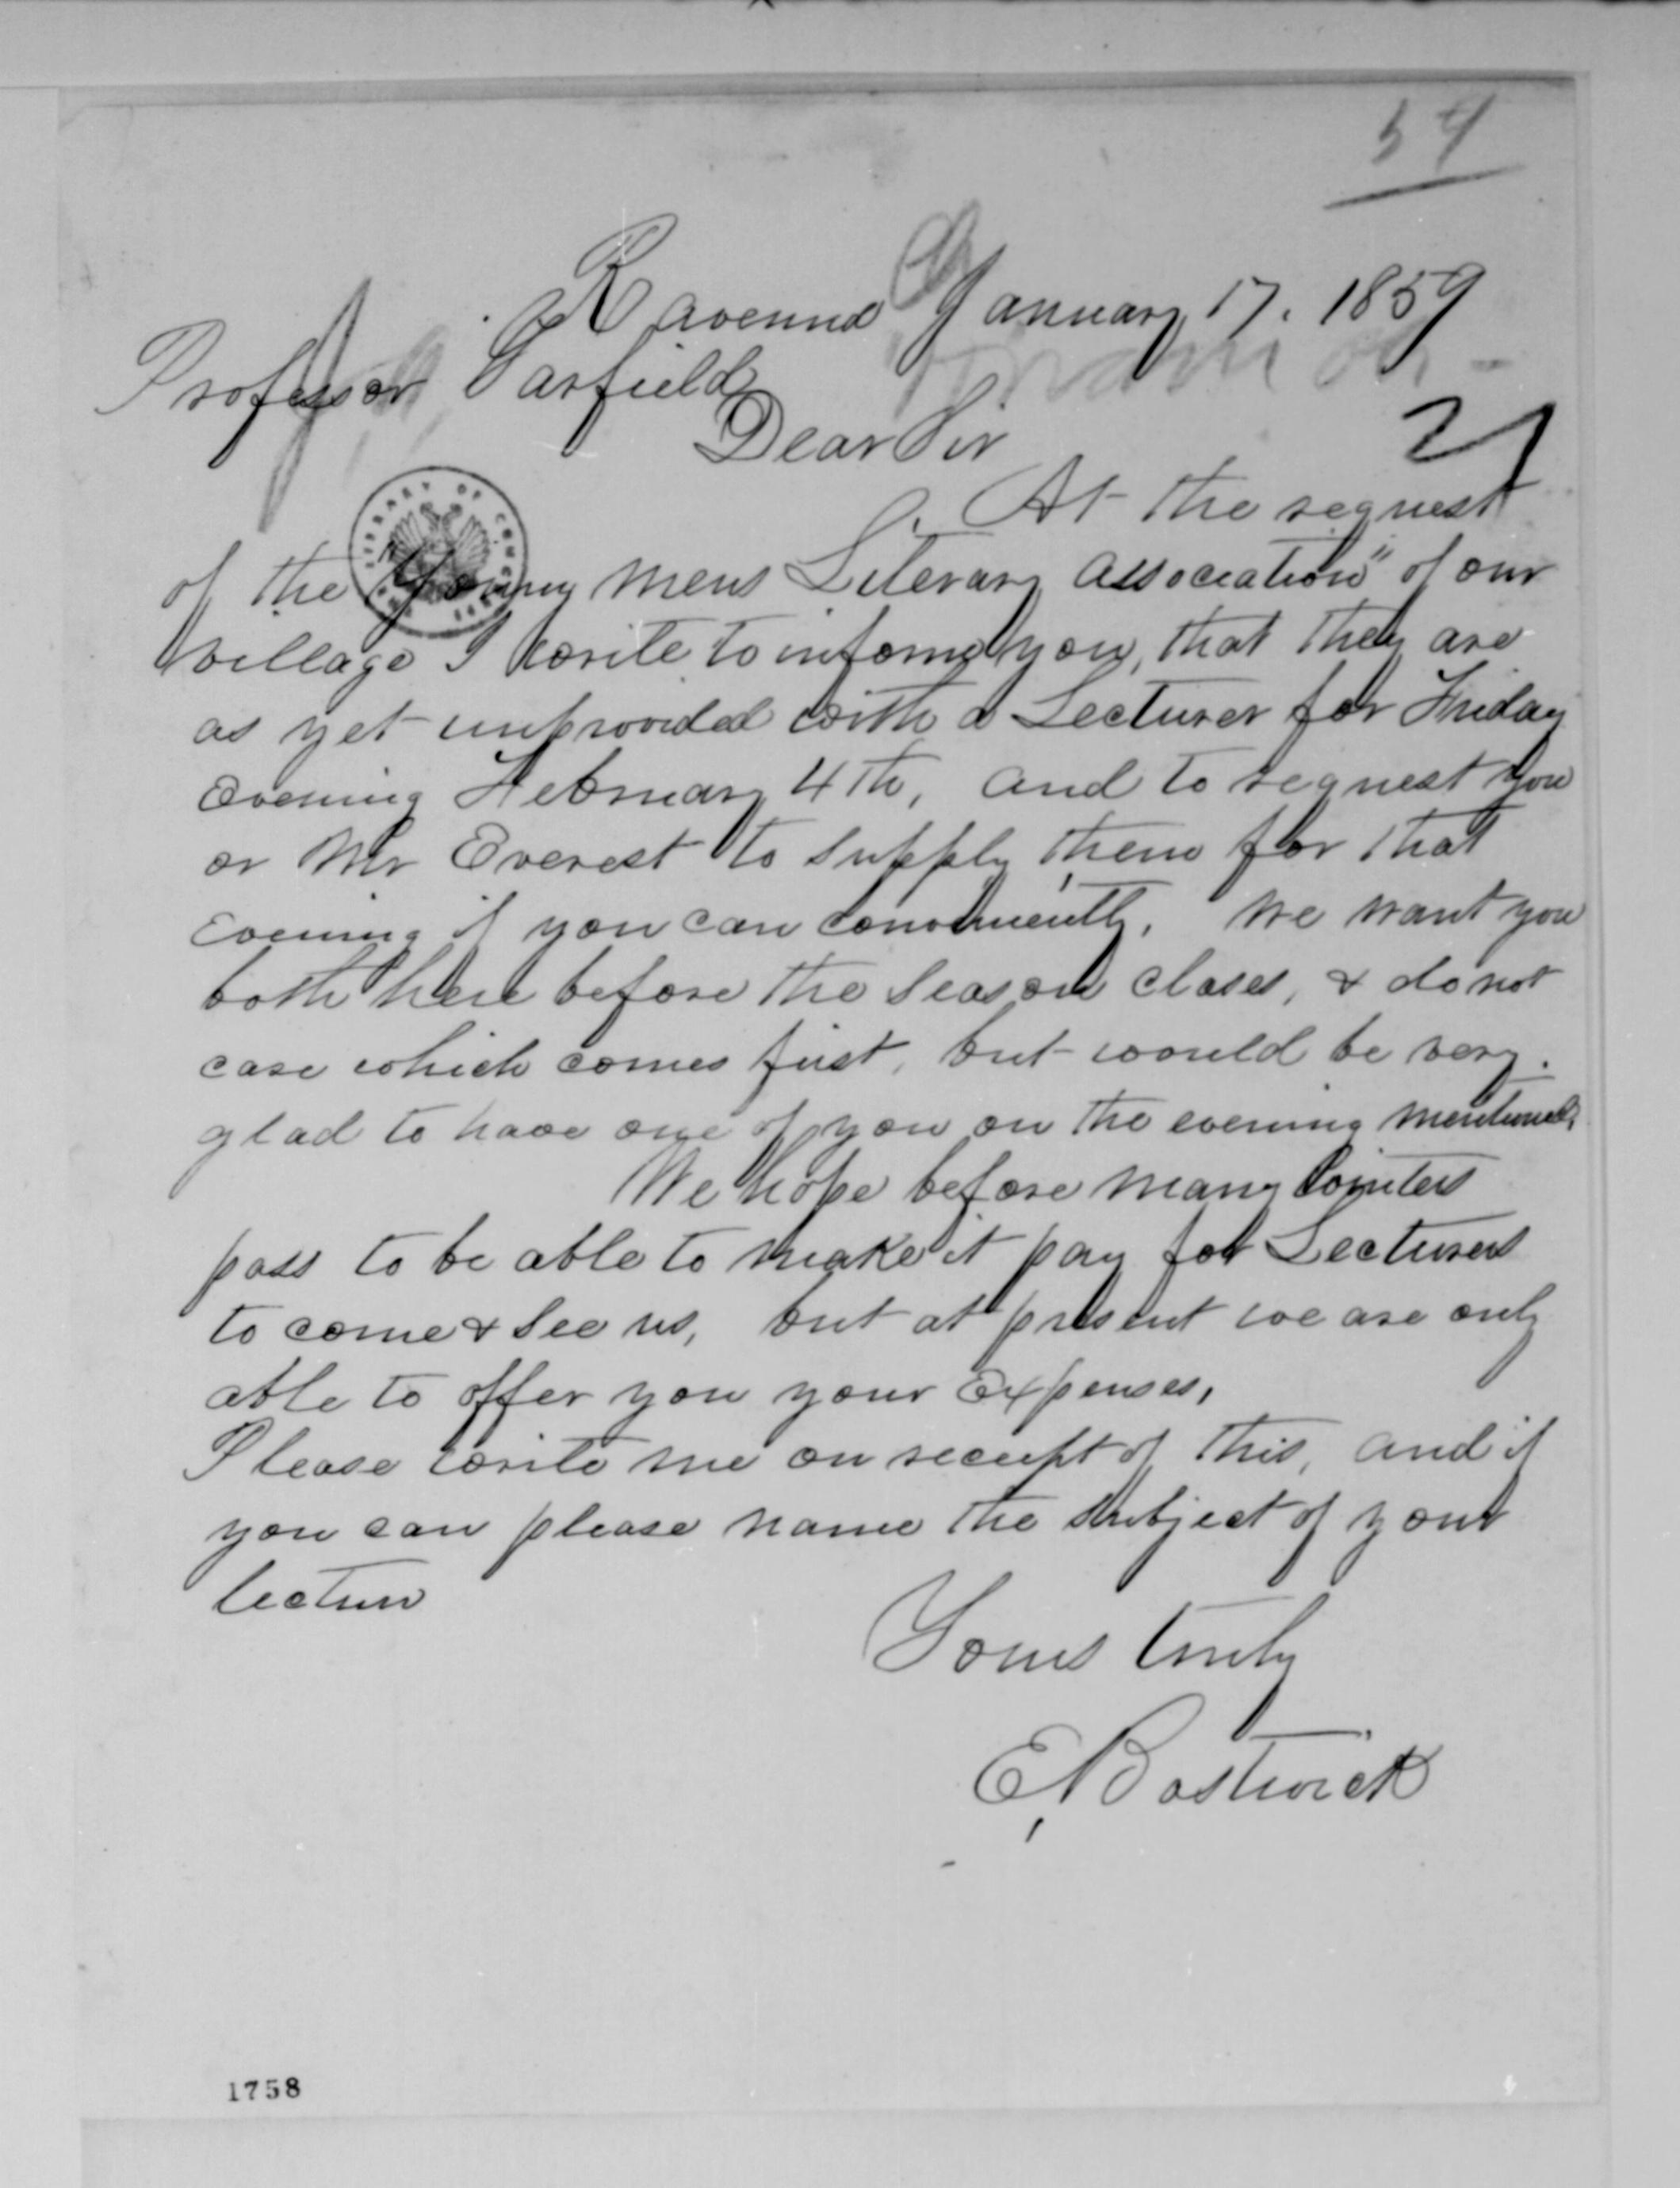 54
Ravenna January 17. 1859
Professor Garfield
Dear Sir
21
At the request
of the "Young mens Literary Association" of our
village I write to inform you, that they are
as yet unprovided with a Lecturer for Friday
Evening February 4th, and to request you
or Mr Everest to supply them for that
Evening if you can conveniently. We want you
both here before the season closes, & do not
care which comes first, but would be very
glad to have one of you on the evening mentioned.
We hope before many winters
pass to be able to make it pay for Lecturers
to come & see us, but at present we are only
able to offer you your Expenses,
Please write me on receipt of this, and if
you can please name the subject of your
lecture
Yours truly
E, Bostwick
LIBRARY OF CONGRESS
1758